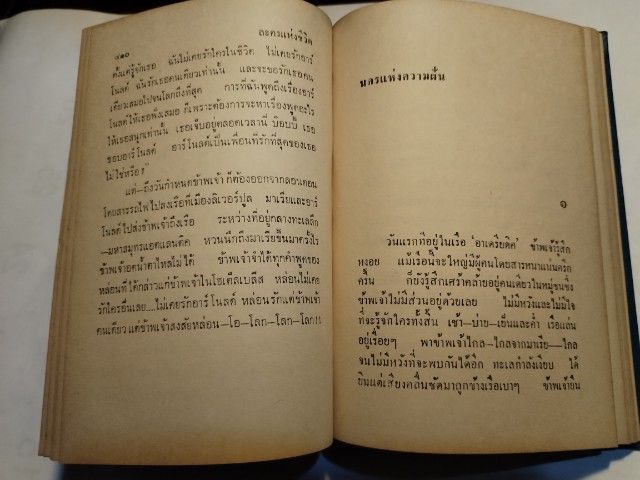 ๔๑๐ ละครแห่งชีวิต
ตั้งแต่รู้จักเธอ ฉันไม่เคยรักใครในชีวิต ไม่เคยรักอาร์
โนลด์ ฉันรักเธอคนเดียวเท่านั้น และจะขอรักเธอคน
เดียวเสมอไปจนโลกถึงที่สุด การที่ฉันพูดถึงเรื่องอาร์
โนลด์ให้เธอฟังเสมอ ก็เพราะต้องการจะหาเรื่องพูดอะไร
ให้เธอสนุกเท่านั้น เธอเจ็บอยู่ตลอดเวลานี่ บ๊อบบี้ เธอ
ชอบอาร์โนลด์ อาร์โนลด์เป็นเพื่อนที่รักที่สุดของเธอ
ไม่ใช่หรือ?”
แต่—ถึงวันกำหนดข้าพเจ้าก็ต้องออกจากลอนดอน
โดยสารรถไฟไปลงเรือที่เมืองลิเวอร์ปูล มาเรียและอาร์
โนลด์ไปส่งข้าพเจ้าถึงเรือ ระหว่างที่อยู่กลางทะเลลึก
—มหาสมุทรแอตแลนติค หวนนึกถึงมาเรียขึ้นมาครั้งไร
ข้าพเจ้าอดน้ำตาไหลไม่ได้ ข้าพเจ้าจำได้ทุกคำพูดของ
หล่อนที่ได้กล่าวแก่ข้าพเจ้าในโฮเต็ลเบลิส หล่อนไม่เคย
รักใครอื่นเลย....ไม่เคยรักอาร์โนลด์ หล่อนรักแต่ข้าพเจ้า
คนเดียว แต่ข้าพเจ้าสงสัยหล่อน—โอ—โลก—โลก—โลก!!
นครแห่งความฝัน
๑
วันแรกที่อยู่ในเรือ ‘อาเดรียติค’ ข้าพเจ้ารู้สึก
หงอย แม้เรือนั้นจะใหญ่มีผู้คนโดยสารหนาแน่นครึก
ครื้น ก็ยังรู้สึกเศร้าคล้ายอยู่คนเดียวในหมู่ชนซึ่ง
ข้าพเจ้าไม่มีส่วนอยู่ด้วยเลย ไม่มีหวังและไม่มีใจ
ที่จะรู้จักใครทั้งสิ้น เช้า—บ่าย—เย็นและค่ำ เรือแล่น
อยู่เรื่อยๆ พาข้าพเจ้าไกล—ไกลจากมาเรีย—ไกล
จนไม่มีหวังที่จะพบกันได้อีก ทะเลกำลังเงียบ ได้
ยินแต่เสียงคลื่นซัดมาถูกข้างเรือเบาๆ ข้าพเจ้ายืน